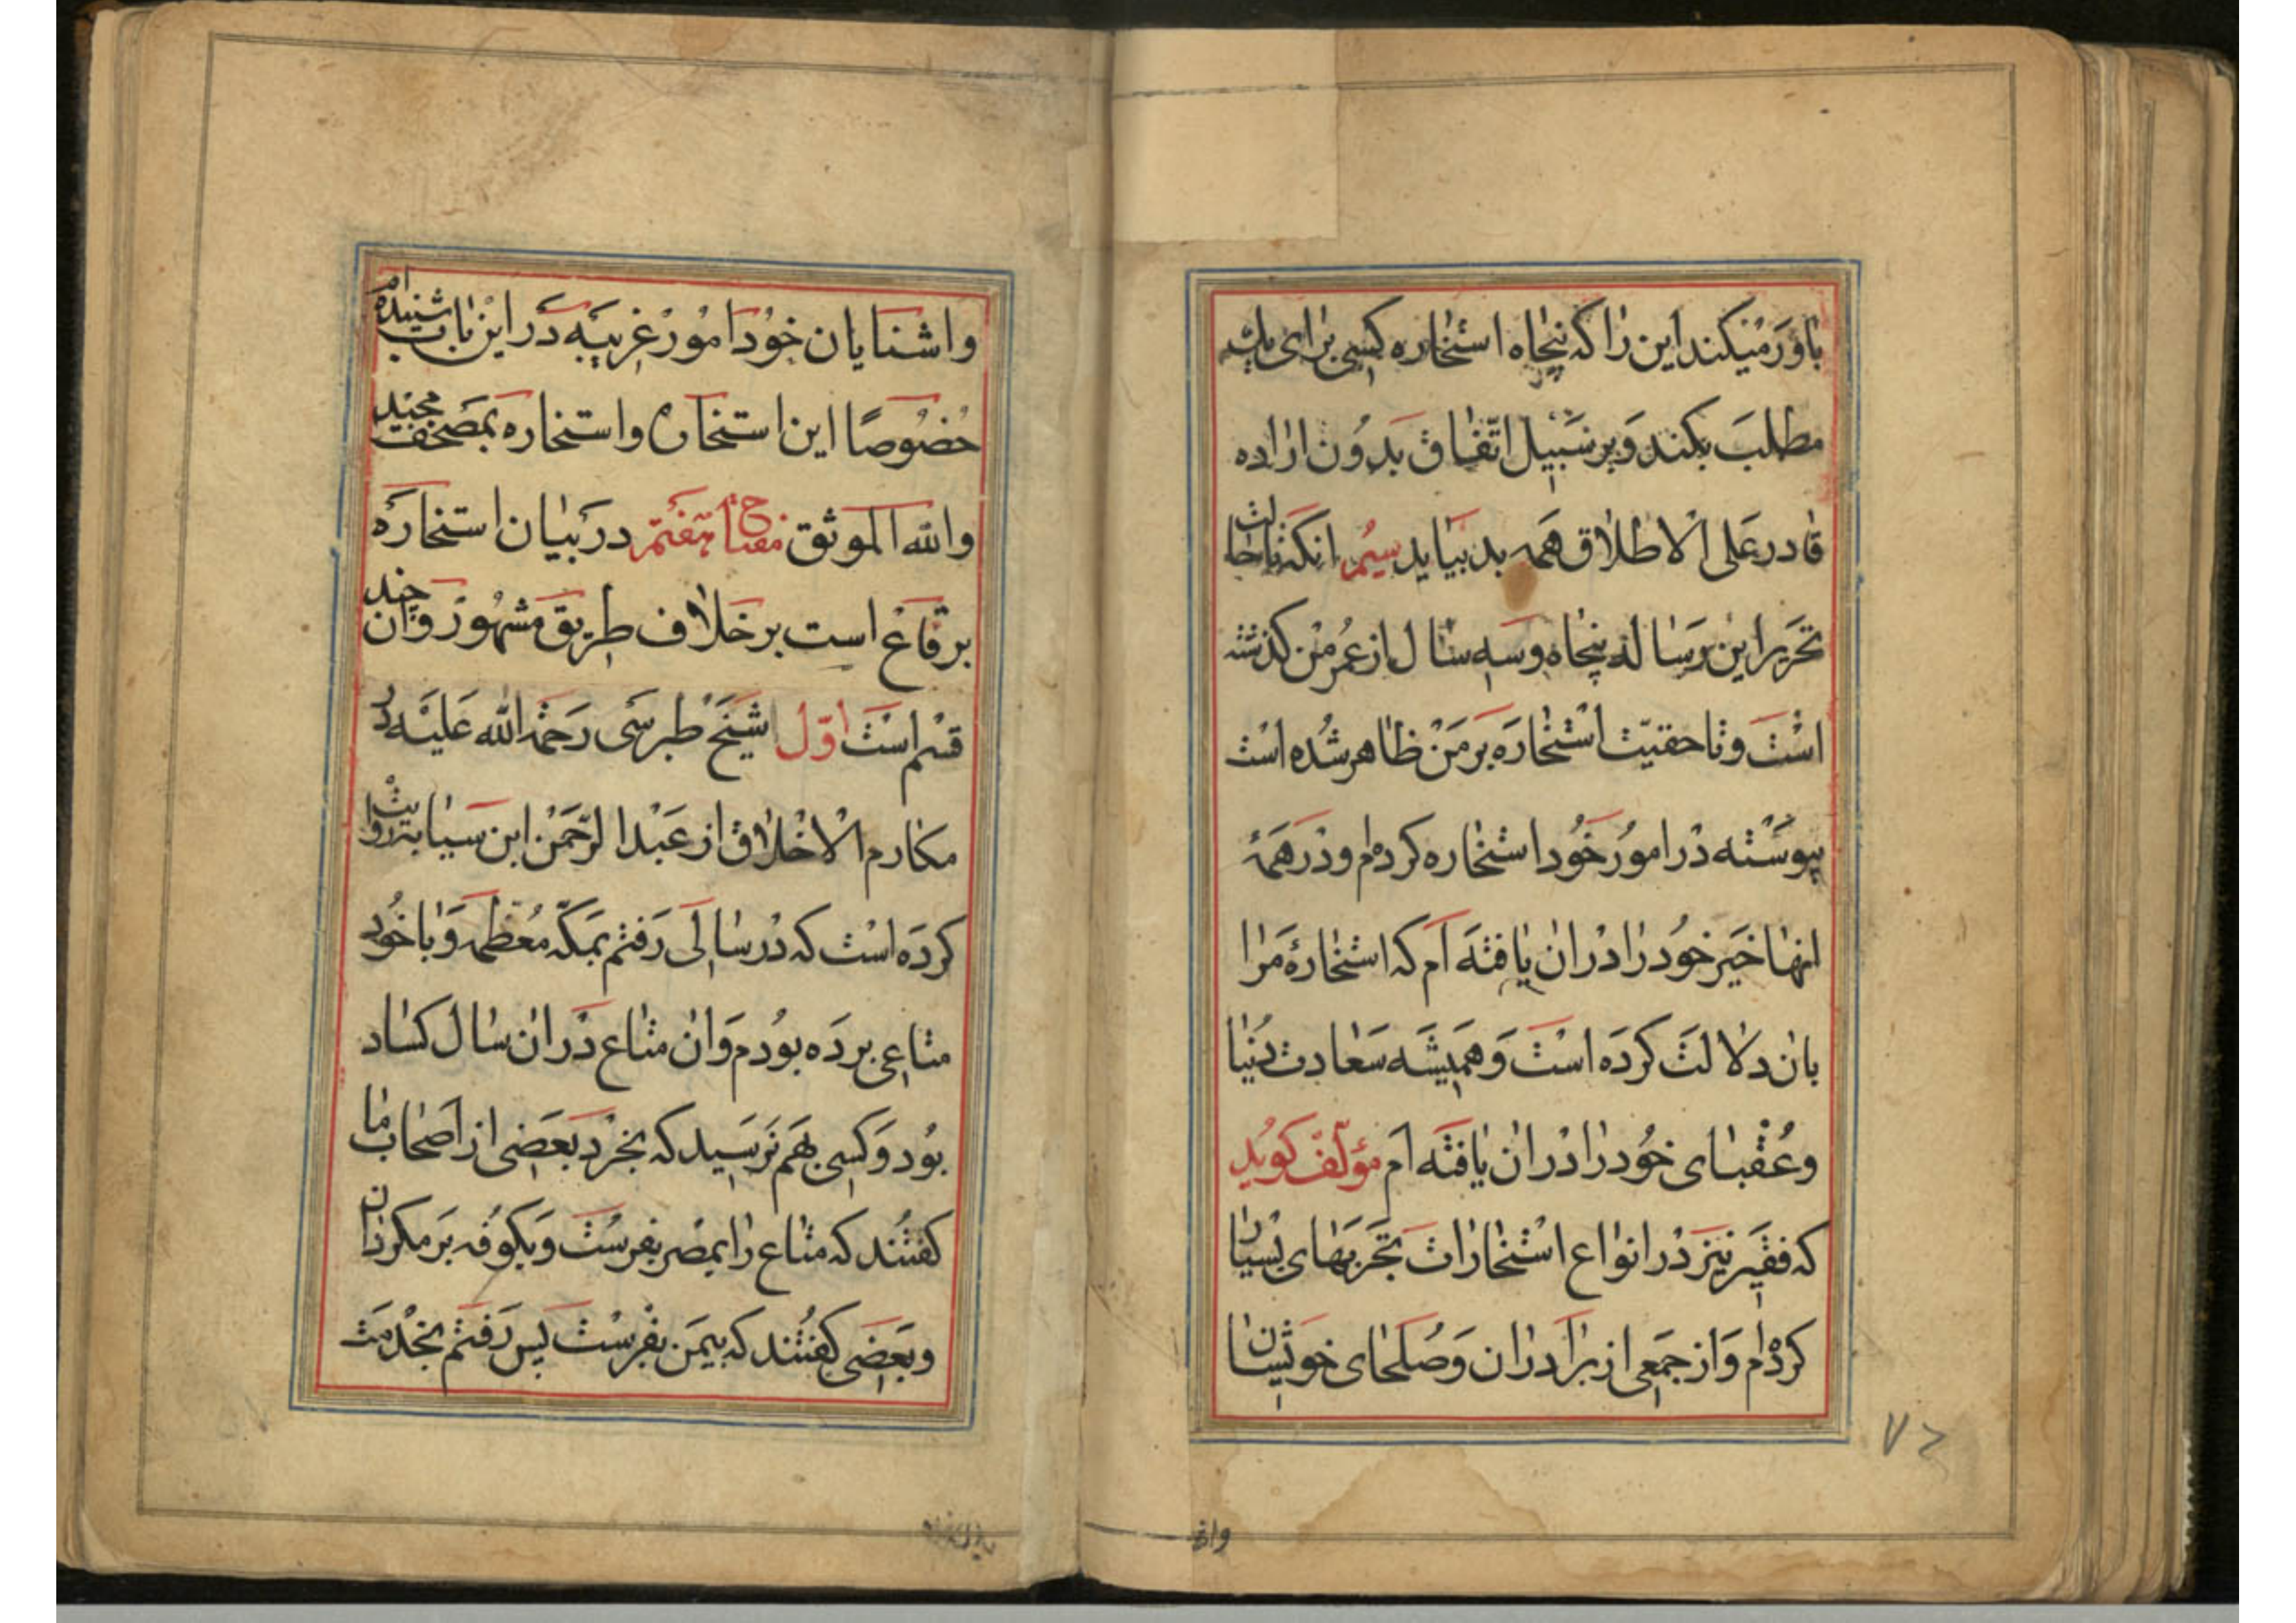 باور میکند این را که پنجاه استخاره کسی برای یک
مطلب بکند و بر سبیل اتفاق بدون اراده
قادر علی الاطلاق همه بد بیاید سیم انکه تا حالت
تحریر این رساله پنجاه و سه سال از عمر من کذشته
است و تا حقیت استخاره بر من ظاهر شده است
پیوسته در امور خود استخاره کرده‌ام و در همهٔ
انها خیر خود را در ان یافته ام که استخارهٔ مرا
بان دلالت کرده است و همیشه سعادت دنیا
و عقبای خود را در ان یافته ام مؤلف کوید
که فقیر نیز در انواع استخارات تجربهای بسیار
کرده‌ام و از جمعی از برادران و صلحای خویشان
وا
واشنایان خود امور غریبه در این باب شنیده‌ام
خصوصًا این استخاره و استخاره بمصحف مجید
والله الموثق مفتاح هفتم در بیان استخارهٔ
برقاع است بر خلاف طریق مشهور و ان چند
قسم است اوّل شیخ طبرسی رحمة الله علیه در
مکارم الاخلاق از عبد الرحمن ابن سیابه روایت
کرده است که در سالی رفتم بمکّه معظمه و با خود
متاعی برده بودم و ان متاع در ان سال کساد
بود و کسی بهم نرسید که بخرد بعضی از اصحاب ما
کفتند که متاع را بمصر بفرست و بکوفه بر مکردان
و بعضی کفتند که بیمن بفرست پس رفتم بخدمت
۷۲